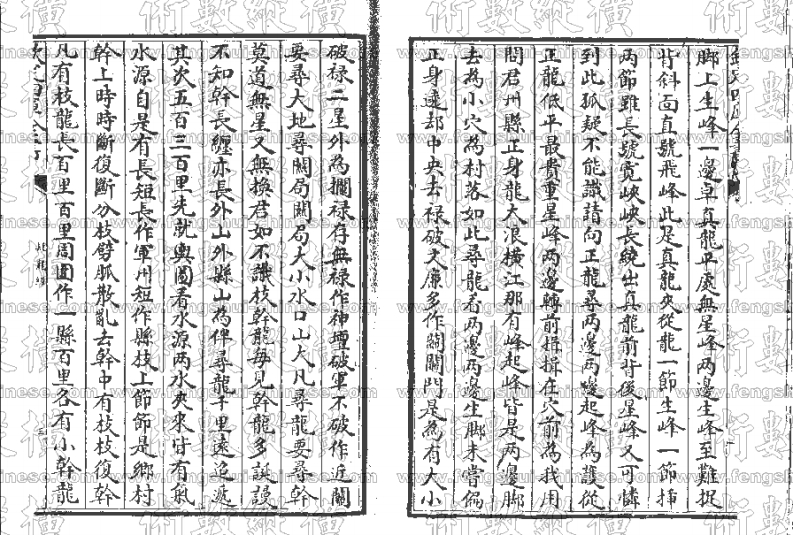 脚上生峰一邊卓真龍平處無星峰两邊生峰至難捉
背斜面直號飛峰此是真龍夾從龍一節生峰一節挿
两節雖長號寛峽峽長繞出真龍前背後星峰又可憐
到此狐疑不能識請向正龍尋两邊两邊起峰為護從
正龍低平最貴重星峰两邊轉前揖揖在穴前為我用
問君州縣正身龍大浪横江那有峰起峰皆是两邊脚
去為小穴為村落如此尋龍看两邊两邊生脚未嘗偏
正身逺却中央去禄破文廉多作闗闗門是為有大小
破禄二星外為攔禄存無禄作神壇破軍不破作近闗
要尋大地尋闗局闗局大小水口山大凡尋龍要尋幹
莫道無星又無換君如不識枝幹龍毎見幹龍多誕謾
不知幹長纒亦長外山外縣山為伴尋龍千里逺迢遞
其次五百三百里先就輿圖看水源两水夾來皆有氣
水源自是有長短長作軍州短作縣枝上節節是鄉村
幹上時時斷復斷分枝劈脈散亂去幹中有枝枝復幹
凡有枝龍長百里百里周圍作一縣百里各有小幹龍
術數縱横
www.fengshui-chinese.com